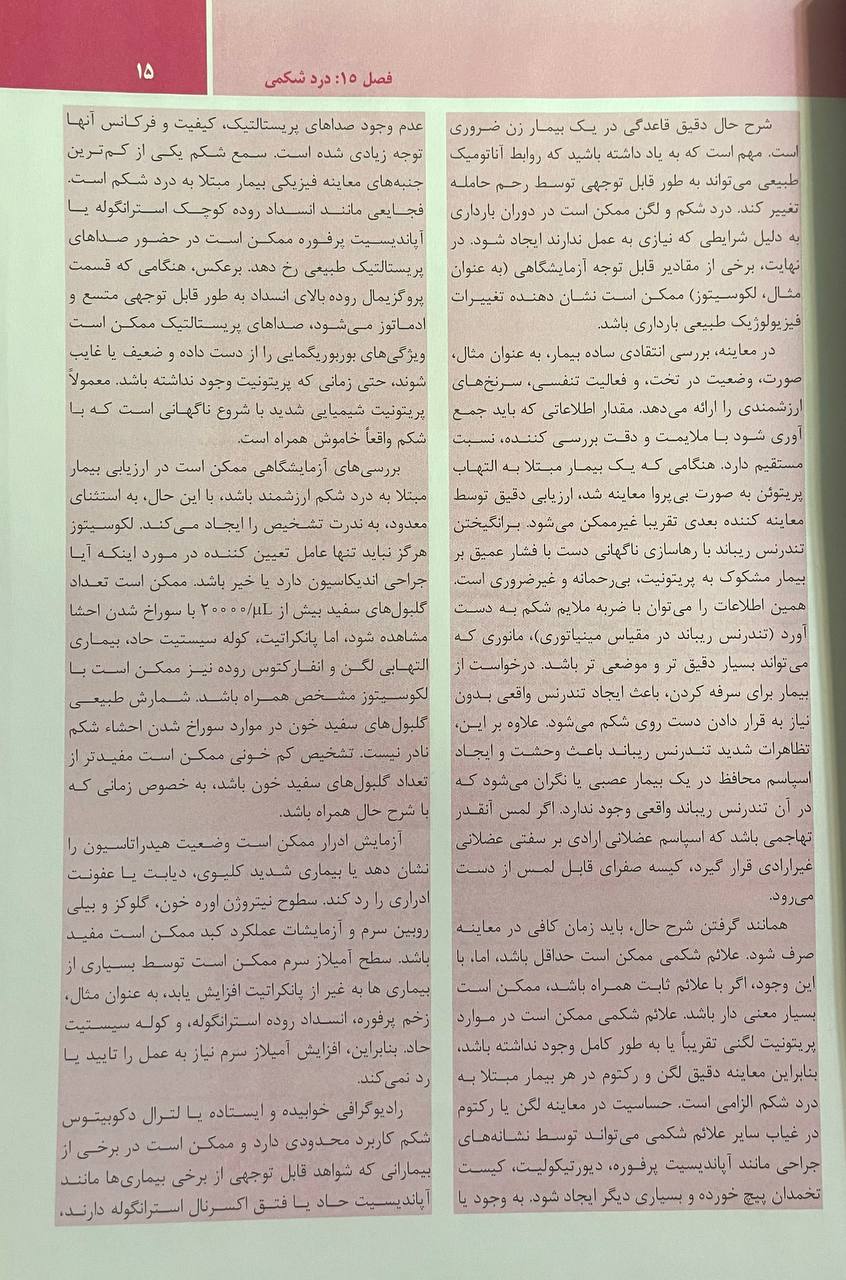 ۱۵
فصل ۱۵: درد شکمی
شرح حال دقیق قاعدگی در یک بیمار زن ضروری
است. مهم است که به یاد داشته باشید که روابط آناتومیک
طبیعی می‌تواند به طور قابل توجهی توسط رحم حامله
تغییر کند. درد شکم و لگن ممکن است در دوران بارداری
به دلیل شرایطی که نیازی به عمل ندارند ایجاد شود. در
نهایت، برخی از مقادیر قابل توجه آزمایشگاهی (به عنوان
مثال، لکوسیتوز) ممکن است نشان دهنده تغییرات
فیزیولوژیک طبیعی بارداری باشد.
در معاینه، بررسی انتقادی ساده بیمار، به عنوان مثال،
صورت، وضعیت در تخت، و فعالیت تنفسی، سرنخ‌های
ارزشمندی را ارائه می‌دهد. مقدار اطلاعاتی که باید جمع
آوری شود با ملایمت و دقت بررسی کننده، نسبت
مستقیم دارد. هنگامی که یک بیمار مبتلا به التهاب
پریتوئن به صورت بی‌پروا معاینه شد، ارزیابی دقیق توسط
معاینه کننده بعدی تقریبا غیرممکن می‌شود. برانگیختن
تندرنس ریباند با رهاسازی ناگهانی دست با فشار عمیق بر
بیمار مشکوک به پریتونیت، بی‌رحمانه و غیرضروری است.
همین اطلاعات را می‌توان با ضربه ملایم شکم به دست
آورد (تندرنس ریباند در مقیاس مینیاتوری)، مانوری که
می‌تواند بسیار دقیق تر و موضعی تر باشد. درخواست از
بیمار برای سرفه کردن، باعث ایجاد تندرنس واقعی بدون
نیاز به قرار دادن دست روی شکم می‌شود. علاوه بر این،
تظاهرات شدید تندرنس ریباند باعث وحشت و ایجاد
اسپاسم محافظ در یک بیمار عصبی یا نگران می‌شود که
در آن تندرنس ریباند واقعی وجود ندارد. اگر لمس آنقدر
تهاجمی باشد که اسپاسم عضلانی ارادی بر سفتی عضلانی
غیرارادی قرار گیرد، کیسه صفرای قابل لمس از دست
می‌رود.
همانند گرفتن شرح حال، باید زمان کافی در معاینه
صرف شود. علائم شکمی ممکن است حداقل باشد، اما، با
این وجود، اگر با علائم ثابت همراه باشد، ممکن است
بسیار معنی دار باشد. علائم شکمی ممکن است در موارد
پریتونیت لگنی تقریباً یا به طور کامل وجود نداشته باشد،
بنابراین معاینه دقیق لگن و رکتوم در هر بیمار مبتلا به
درد شکم الزامی است. حساسیت در معاینه لگن یا رکتوم
در غیاب سایر علائم شکمی می‌تواند توسط نشانه‌های
جراحی مانند آپاندیسیت پرفوره، دیورتیکولیت، کیست
تخمدان پیچ خورده و بسیاری دیگر ایجاد شود. به وجود یا
عدم وجود صداهای پریستالتیک، کیفیت و فرکانس آنها
توجه زیادی شده است. سمع شکم یکی از کم‌ترین
جنبه‌های معاینه فیزیکی بیمار مبتلا به درد شکم است.
فجایعی مانند انسداد روده کوچک استرانگوله یا
آپاندیسیت پرفوره ممکن است در حضور صداهای
پریستالتیک طبیعی رخ دهد. برعکس، هنگامی که قسمت
پروگزیمال روده بالای انسداد به طور قابل توجهی متسع و
ادماتوز می‌شود، صداهای پریستالتیک ممکن است
ویژگی‌های بوربوریگمایی را از دست داده و ضعیف یا غایب
شوند، حتی زمانی که پریتونیت وجود نداشته باشد. معمولاً
پریتونیت شیمیایی شدید با شروع ناگهانی است که با
شکم واقعاً خاموش همراه است.
بررسی‌های آزمایشگاهی ممکن است در ارزیابی بیمار
مبتلا به درد شکم ارزشمند باشد، با این حال، به استثنای
معدود، به ندرت تشخیص را ایجاد می‌کند. لکوسیتوز
هرگز نباید تنها عامل تعیین کننده در مورد اینکه آیا
جراحی اندیکاسیون دارد یا خیر باشد. ممکن است تعداد
گلبول‌های سفید بیش از ۲۰۰۰۰/µL با سوراخ شدن احشا
مشاهده شود، اما پانکراتیت، کوله سیستیت حاد، بیماری
التهابی لگن و انفارکتوس روده نیز ممکن است با
لکوسیتوز مشخص همراه باشد. شمارش طبیعی
گلبول‌های سفید خون در موارد سوراخ شدن احشاء شکم
نادر نیست. تشخیص کم خونی ممکن است مفیدتر از
تعداد گلبول‌های سفید خون باشد، به خصوص زمانی که
با شرح حال همراه باشد.
آزمایش ادرار ممکن است وضعیت هیدراتاسیون را
نشان دهد یا بیماری شدید کلیوی، دیابت یا عفونت
ادراری را رد کند. سطوح نیتروژن اوره خون، گلوکز و بیلی
روبین سرم و آزمایشات عملکرد کبد ممکن است مفید
باشد. سطح آمیلاز سرم ممکن است توسط بسیاری از
بیماری ها به غیر از پانکراتیت افزایش یابد، به عنوان مثال،
زخم پرفوره، انسداد روده استرانگوله، و کوله سیستیت
حاد. بنابراین، افزایش آمیلاز سرم نیاز به عمل را تایید یا
رد نمی‌کند.
رادیوگرافی خوابیده و ایستاده یا لترال دکوبیتوس
شکم کاربرد محدودی دارد و ممکن است در برخی از
بیمارانی که شواهد قابل توجهی از برخی بیماری‌ها مانند
آپاندیسیت حاد یا فتق اکسرنال استرانگوله دارند،